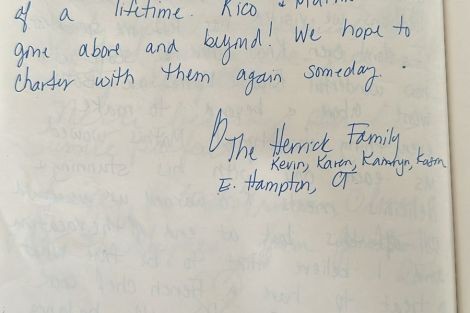 of a lifetime. Rico
gone above and beyond! We hope to
charter with them again someday.
The Herrick Family
Kevin, Karen,
E. Hampton, CT